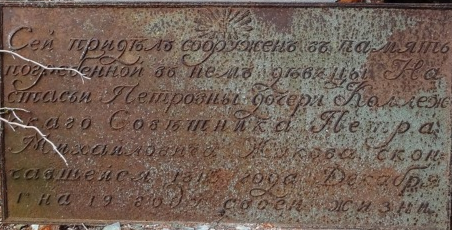 Сей придѣлъ сооруженъ въ память
погребенной въ немъ дѣвицы На
стасьи Петровны дочери Коллеж
скаго Совѣтника Петра
Михайловича скон
чавшейся года Декабр
на 19 году своей жизни